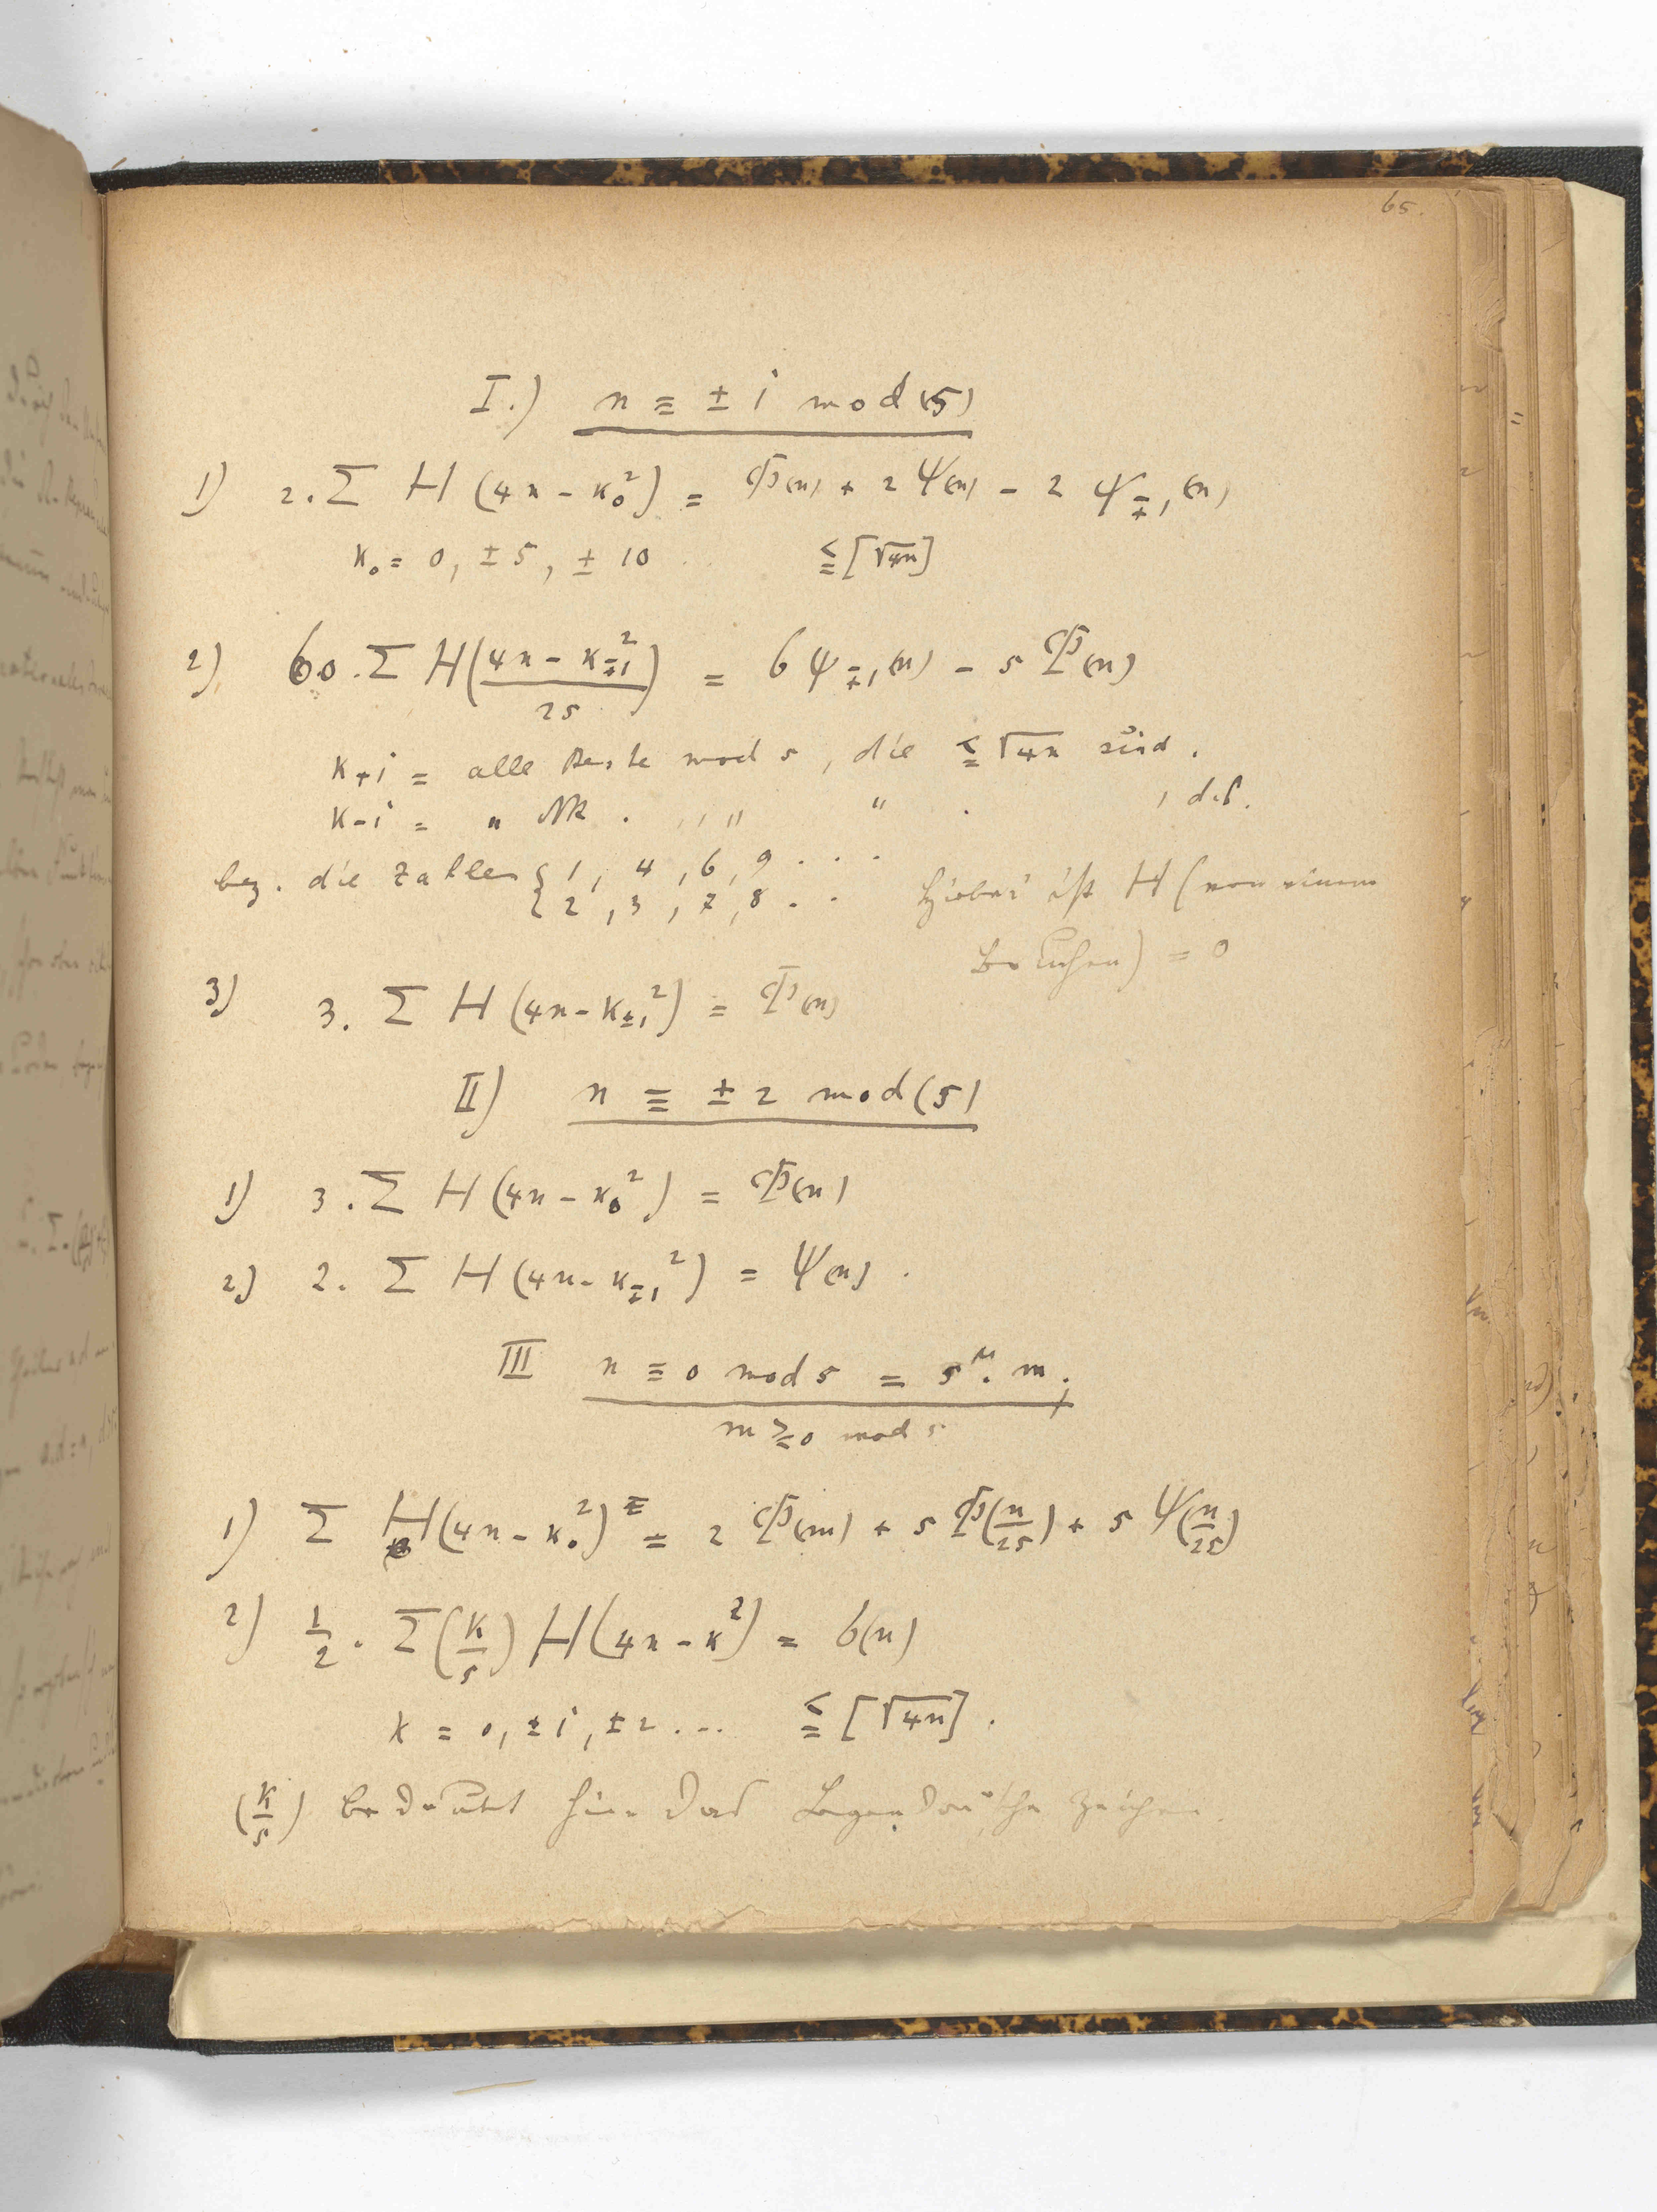 65.
I.) n ≡ ± 1 mod (5)
1) 2. Σ H (4n - κ₀²) = Φ(n) + 2 Ψ(n) - 2 Ψ∓₁(n)
κ₀ = 0, ± 5, ± 10 .. ≦ [√4n]
2) 60. Σ H((4n - κ∓₁²)/25) = 6 Ψ∓₁(n) - 5 Φ(n)
κ₊₁ = alle Reste mod 5, die ≦ √4n sind.
κ₋₁ = " NR . " " " . , d.h.
bez. die Zahlen { 1, 4, 6, 9 . . .
{ 2, 3, 7, 8 . . Hiebei ist H (von einem
Bruche) = 0
3) 3. Σ H (4n - κ±₁²) = Φ(n)
II) n ≡ ± 2 mod (5)
1) 3. Σ H (4n - κ₀²) = Φ(n)
2) 2. Σ H (4n - κ∓₁²) = Ψ(n) .
III n ≡ 0 mod 5 = 5^μ. m ;
m ≷ 0 mod 5
1) Σ H(4n - κ₀²) = 2 Φ(m) + 5 Φ(n/25) + 5 Ψ(n/25)
2) 1/2 . Σ (κ/5) H(4n - κ²) = 6(n)
κ = 0, ±1, ±2 ... ≦ [√4n] .
(κ/5) bedeutet hier das Legendre'sche Zeichen.